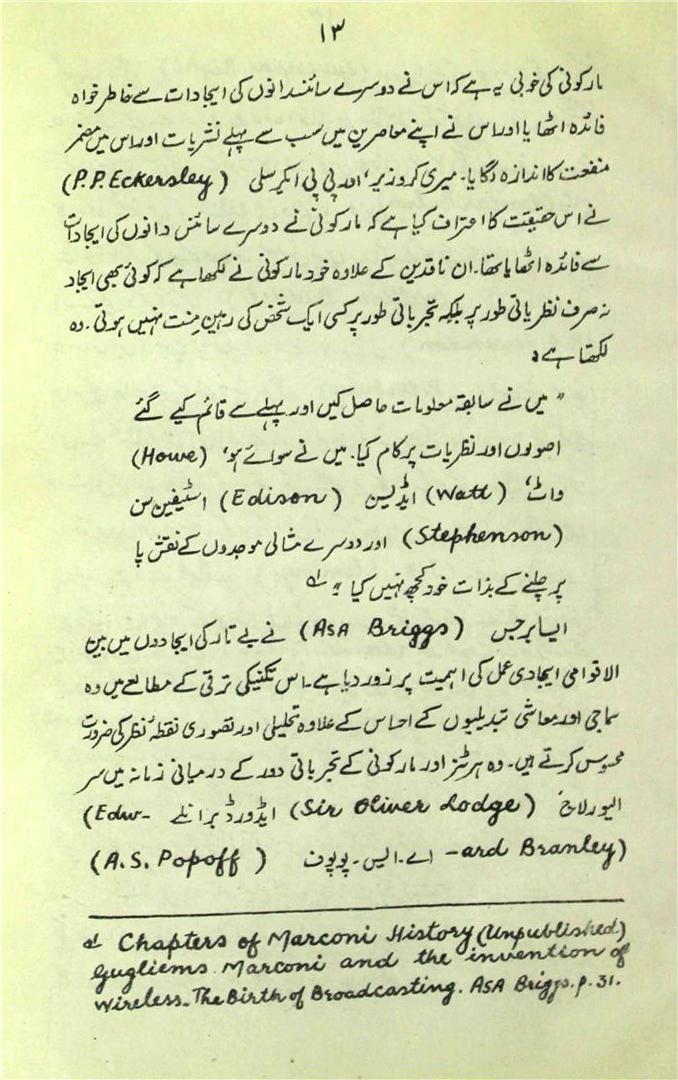 ۱۳
مارکونی کی خوبی یہ ہے کہ اس نے دوسرے سائنسدانوں کی ایجادات سے خاطر خواہ
فائدہ اٹھایا اور اس نے اپنے معاصرین میں سب سے پہلے نشریات اور اس میں مضمر
منفعت کا اندازہ لگایا۔ میری کروزیر، اور پی پی ایکرسلی (P.P. Eckersley)
نے اس حقیقت کا اعتراف کیا ہے کہ مارکونی نے دوسرے سائنس دانوں کی ایجادات
سے فائدہ اٹھایا تھا۔ ان ناقدین کے علاوہ خود مارکونی نے لکھا ہے کہ کوئی بھی ایجاد
نہ صرف نظریاتی طور پر بلکہ تجرباتی طور پر کسی ایک شخص کی رہین منت نہیں ہوتی۔ وہ
لکھتا ہے:
" میں نے سابقہ معلومات حاصل کیں اور پہلے سے قائم کیے گئے
اصولوں اور نظریات پر کام کیا۔ میں نے سوائے ہو، (Howe)
واٹ، (Watt) ایڈیسن (Edison) اسٹیفین سن
(Stephenson) اور دوسرے مثالی موجدوں کے نقش پا
پر چلنے کے بذات خود کچھ نہیں کیا " لہ
ایسا برجس (ASA Briggs) نے بے تار کی ایجادوں میں بین
الاقوامی ایجادی عمل کی اہمیت پر زور دیا ہے۔ اس تکنیکی ترقی کے مطالعے میں وہ
سماجی اور معاشی تبدیلیوں کے احساس کے علاوہ تحلیلی اور تصوری نقطۂ نظر کی ضرورت
محسوس کرتے ہیں۔ وہ ہرٹز اور مارکونی کے تجرباتی دور کے درمیانی زمانہ میں سر
الیور لاج (Sir Oliver Lodge) ایڈورڈ برانلے (Edw-
ard Branley) اے۔ ایس۔ پوپوف (A.S. Popoff)
لہ Chapters of Marconi History (Unpublished)
Gugliems Marconi and the invention of
Wireless_ The Birth of Broadcasting. ASA Briggs. p. 31.